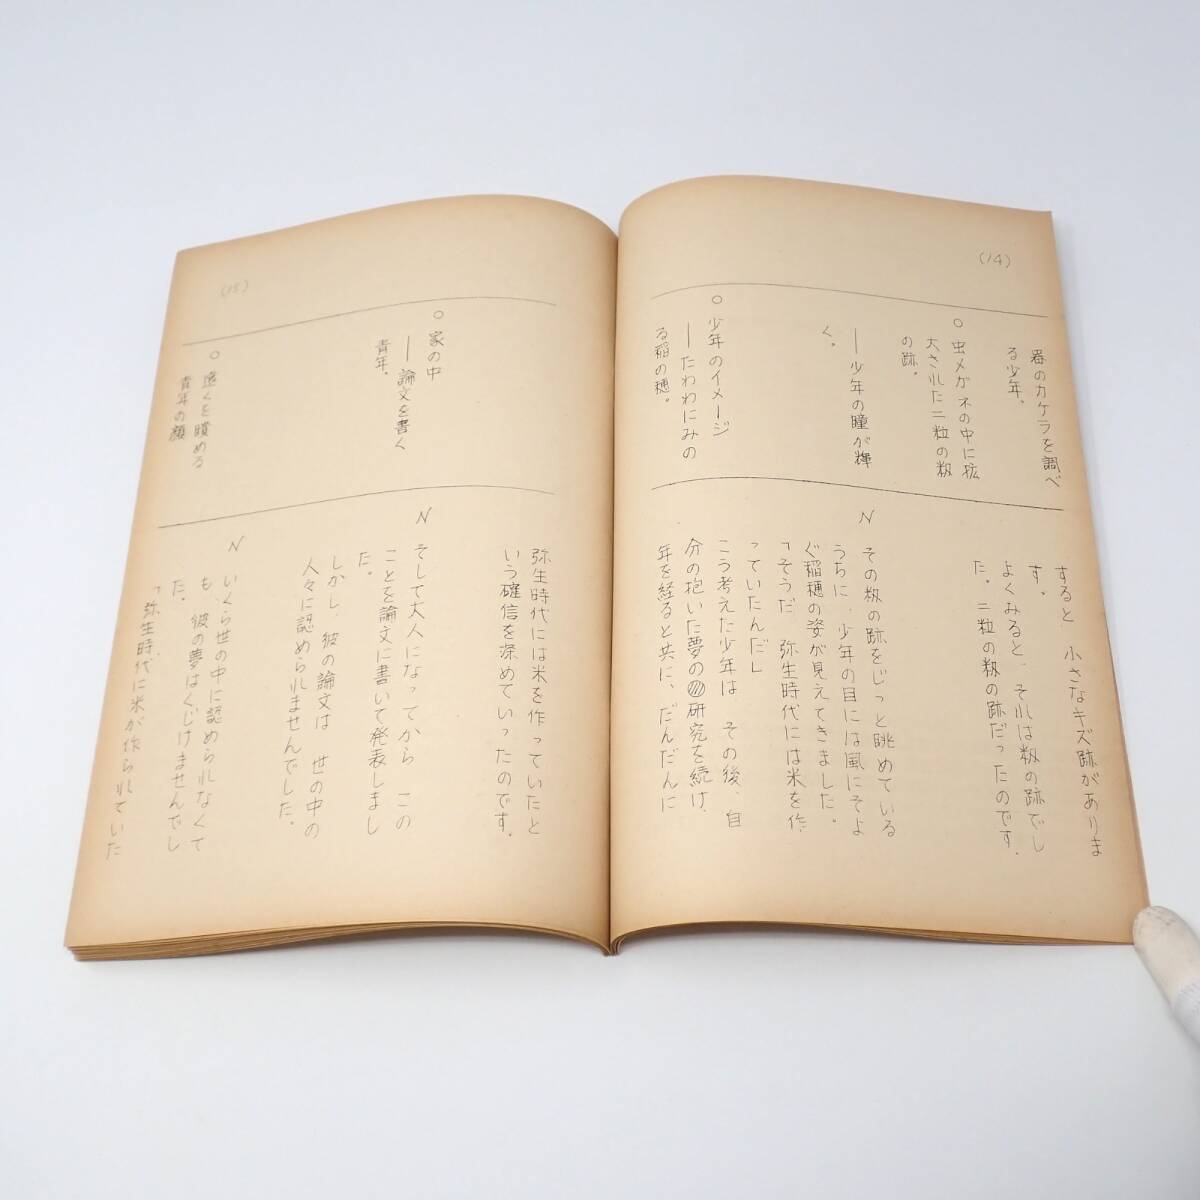 (14)
器のカケラを調べ
る少年。
○ 虫メガネの中に拡
大された二粒の籾
の跡。
――少年の瞳が輝
く。
○ 少年のイメージ
――たわわにみの
る稲の穂。
すると 小さなキズ跡がありま
す。
よくみると、それは籾の跡でし
た。二粒の籾の跡だったのです。
N その籾の跡をじっと眺めている
うちに、少年の目には風にそよ
ぐ稲穂の姿が見えてきました。
「そうだ 弥生時代には米を作
っていたんだ」
こう考えた少年は その後、自
分の抱いた夢の研究を続け、
年を経ると共に、だんだんに
(15)
○ 家の中
――論文を書く
青年。
○ 遠くを瞶める
青年の顔
弥生時代には米を作っていたと
いう確信を深めていったのです。
N そして大人になってから この
ことを論文に書いて発表しまし
た。
しかし、彼の論文は 世の中の
人々に認められませんでした。
N いくら世の中に認められなくて
も、彼の夢はくじけませんでし
た。
「弥生時代に米が作られていた